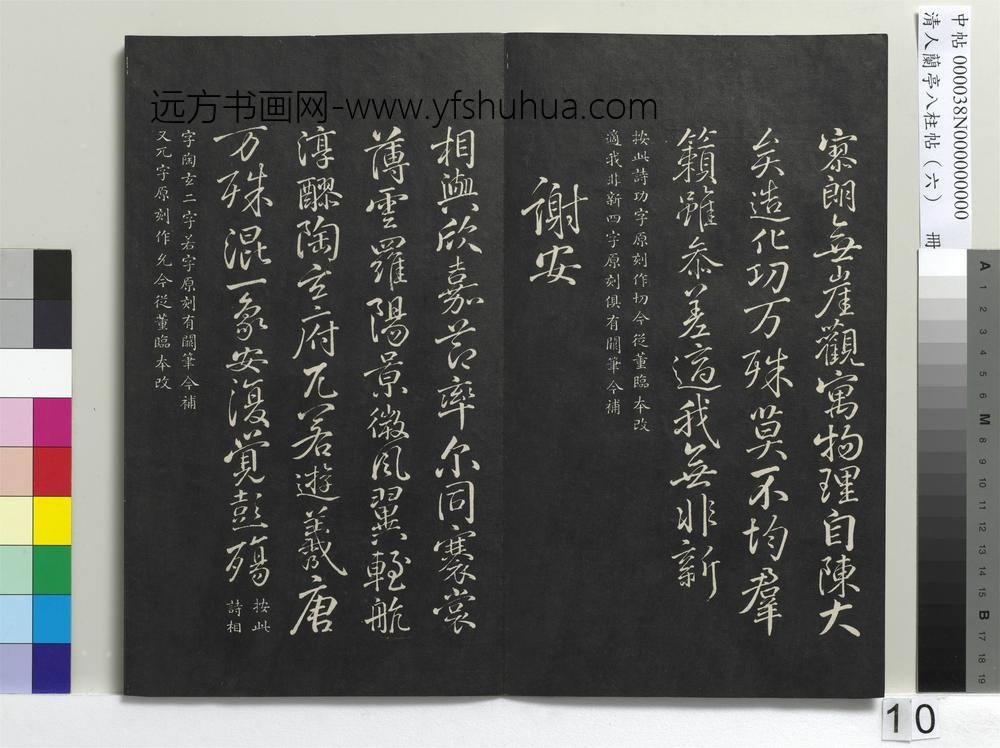 远方书画网-www.yfshuhua.com
中帖 000038N000000000
清人蘭亭八柱帖（六） 冊
寮朗無崖觀寓物理自陳大
矣造化功万殊莫不均羣
籟雖叅差適我無非新
按此詩功字原刻作切今從董臨本改
適我非新四字原刻俱有闕筆今補
謝安
相與欣嘉莭率尓同褰裳
薄雲羅陽景微風翼輕航
淳醪陶玄府兀若遊羲唐
万殊混一象安復覺彭殤
按此
詩相
字陶玄二字若字原刻有闕筆今補
又兀字原刻作允今從董臨本改
A 1 2 3 4 5 6 M 8 9 10 11 12 13 14 15 B 17 18 19
10